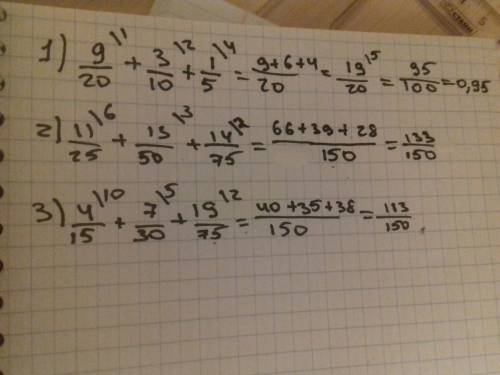 1) 9/20 \1 + 3/10 \2 + 1/5 \4 = 9+6+4/20 = 19/20 \5 = 95/100 = 0,95
2) 11/25 \6 + 13/50 \3 + 14/75 \2 = 66+39+28/150 = 133/150
3) 4/15 \10 + 7/30 \5 + 19/75 \2 = 40+35+38/150 = 113/150.